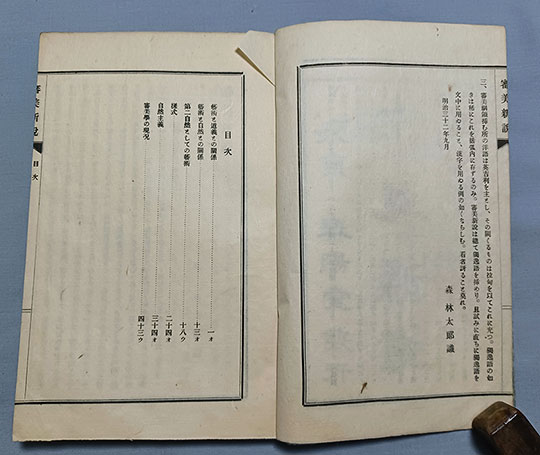 審美新説
三、審美綱領挿む所の洋語は英吉利を主とし、その闕くるものは拉甸を以てこれに充つ。獨逸語の如
きは稀にこれを括弧内に存するのみ。審美新説は槪て獨逸語を挿めり。且試みに直ちに獨逸語を
文中に用ゐること、漢字を用ゐる例の如くならしむ。看者訝ること莫れ。
明治三十二年九月
森林太郎識
目次
藝術と道義との關係 一オ
藝術と自然との關係 十三オ
第二自然としての藝術 十八ウ
深式 二十四オ
自然主義 三十四オ
審美學の現況 四十三ウ
審美新説
目次